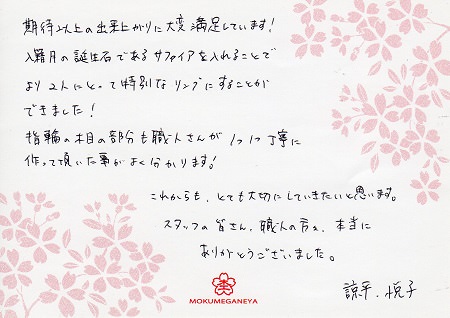 期待以上の出来上がりに大変満足しています!
入籍月の誕生石であるサファイアを入れることで
より2人にとって特別なリングにすることが
できました!
指輪の木目の部分も職人さんが1つ1つ丁寧に
作って頂いた事がよく分かります!
これからも、とても大切にしていきたいと思います。
スタッフの皆さん、職人の方々、本当に
ありがとうございました。
MOKUMEGANEYA
諒平、悦子